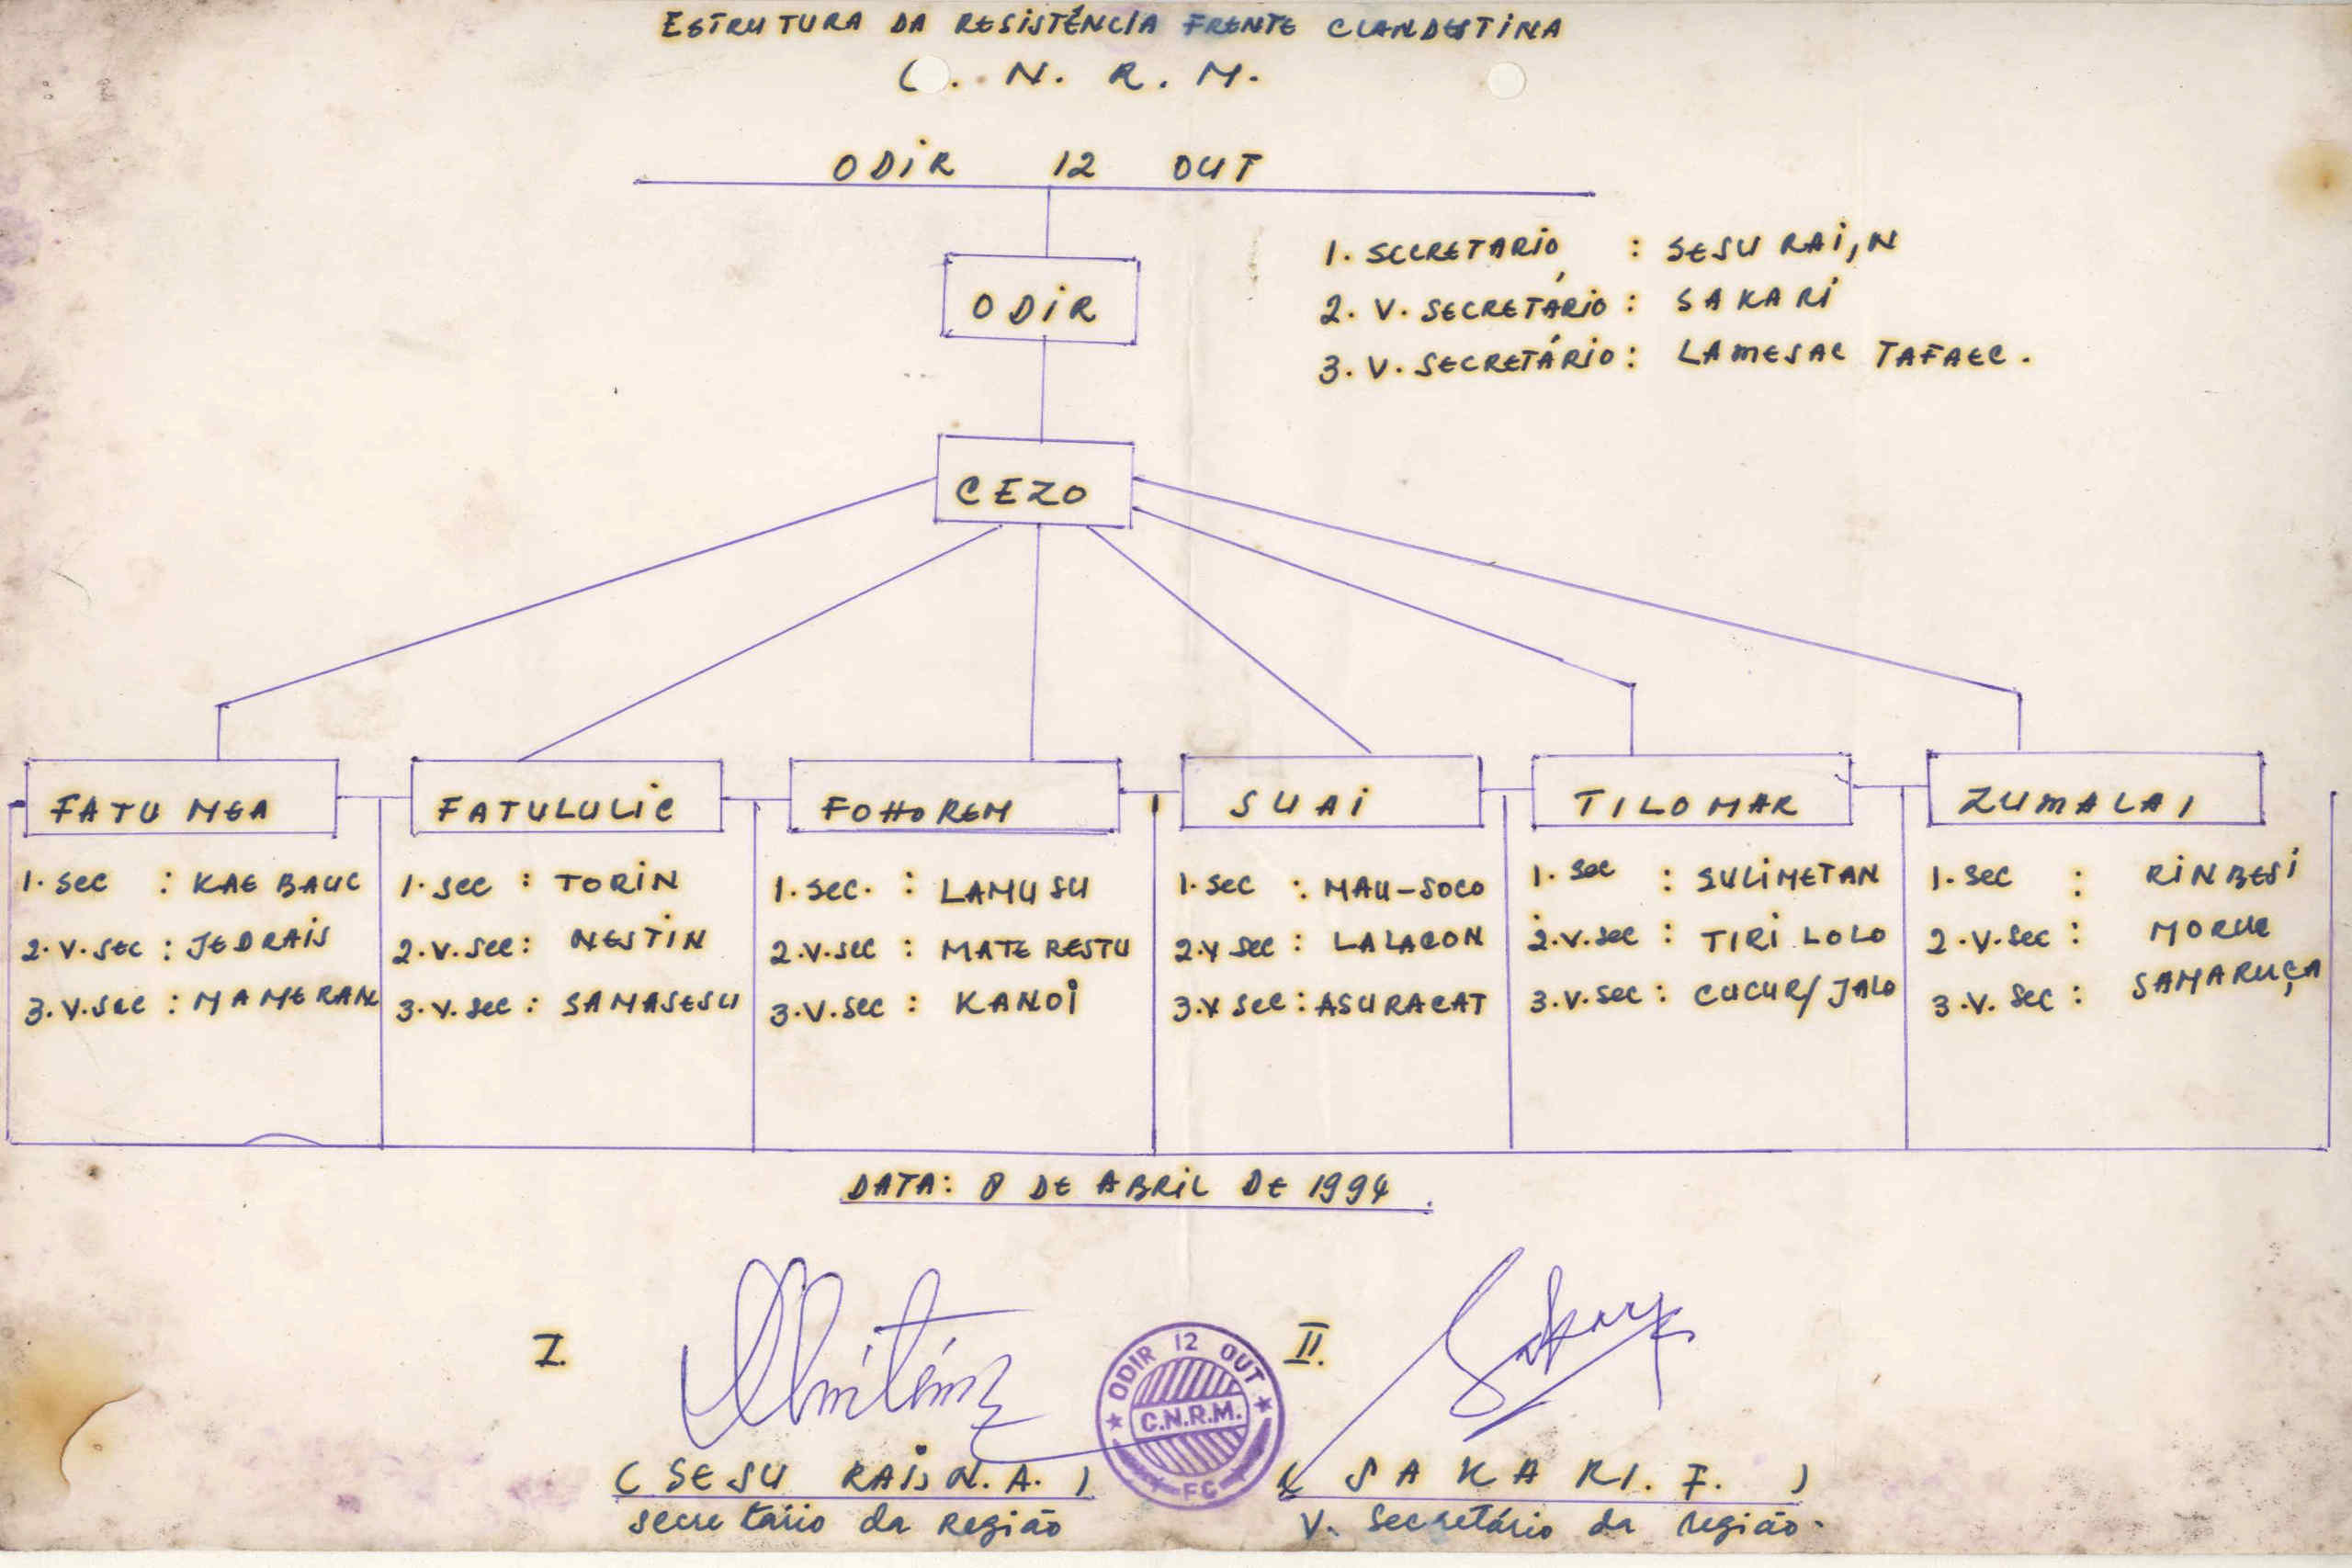 ESTRUTURA DA RESISTÊNCIA FRENTE CLANDESTINA
C. N. R. M.
ODIR 12 OUT
ODIR
1. SECRETARIO : SESU RAI,N
2. V. SECRETÁRIO : SAKARI
3. V. SECRETÁRIO : LAMESAC TAFAEC.
CEZO
FATU MEA
1. SEC : KAE BAUC
2. V. SEC : JEDRAIS
3. V. SEC : MAMERAN
FATULULIC
1. SEC : TORIN
2. V. SEC : NESTIN
3. V. SEC : SAMASESU
FOHOREM
1. SEC. : LAMUSU
2. V. SEC : MATE RESTU
3. V. SEC : KANOI
SUAI
1. SEC : MAU-SOCO
2. V SEC : LALACON
3. V SEC : ASURACAT
TILOMAR
1. SEC : SULIMETAN
2. V. SEC : TIRI LOLO
3. V. SEC : CUCUR/JALO
ZUMALAI
1. SEC : RINBESI
2. V. SEC : MORUC
3. V. SEC : SAMARUÇA
DATA: 8 DE ABRIL DE 1994.
I.
II.
ODIR 12 OUT
C.N.R.M.
FC
( SESU RAI,N.A. )
secretário da região
( SAKARI. F. )
V. Secretário da região.